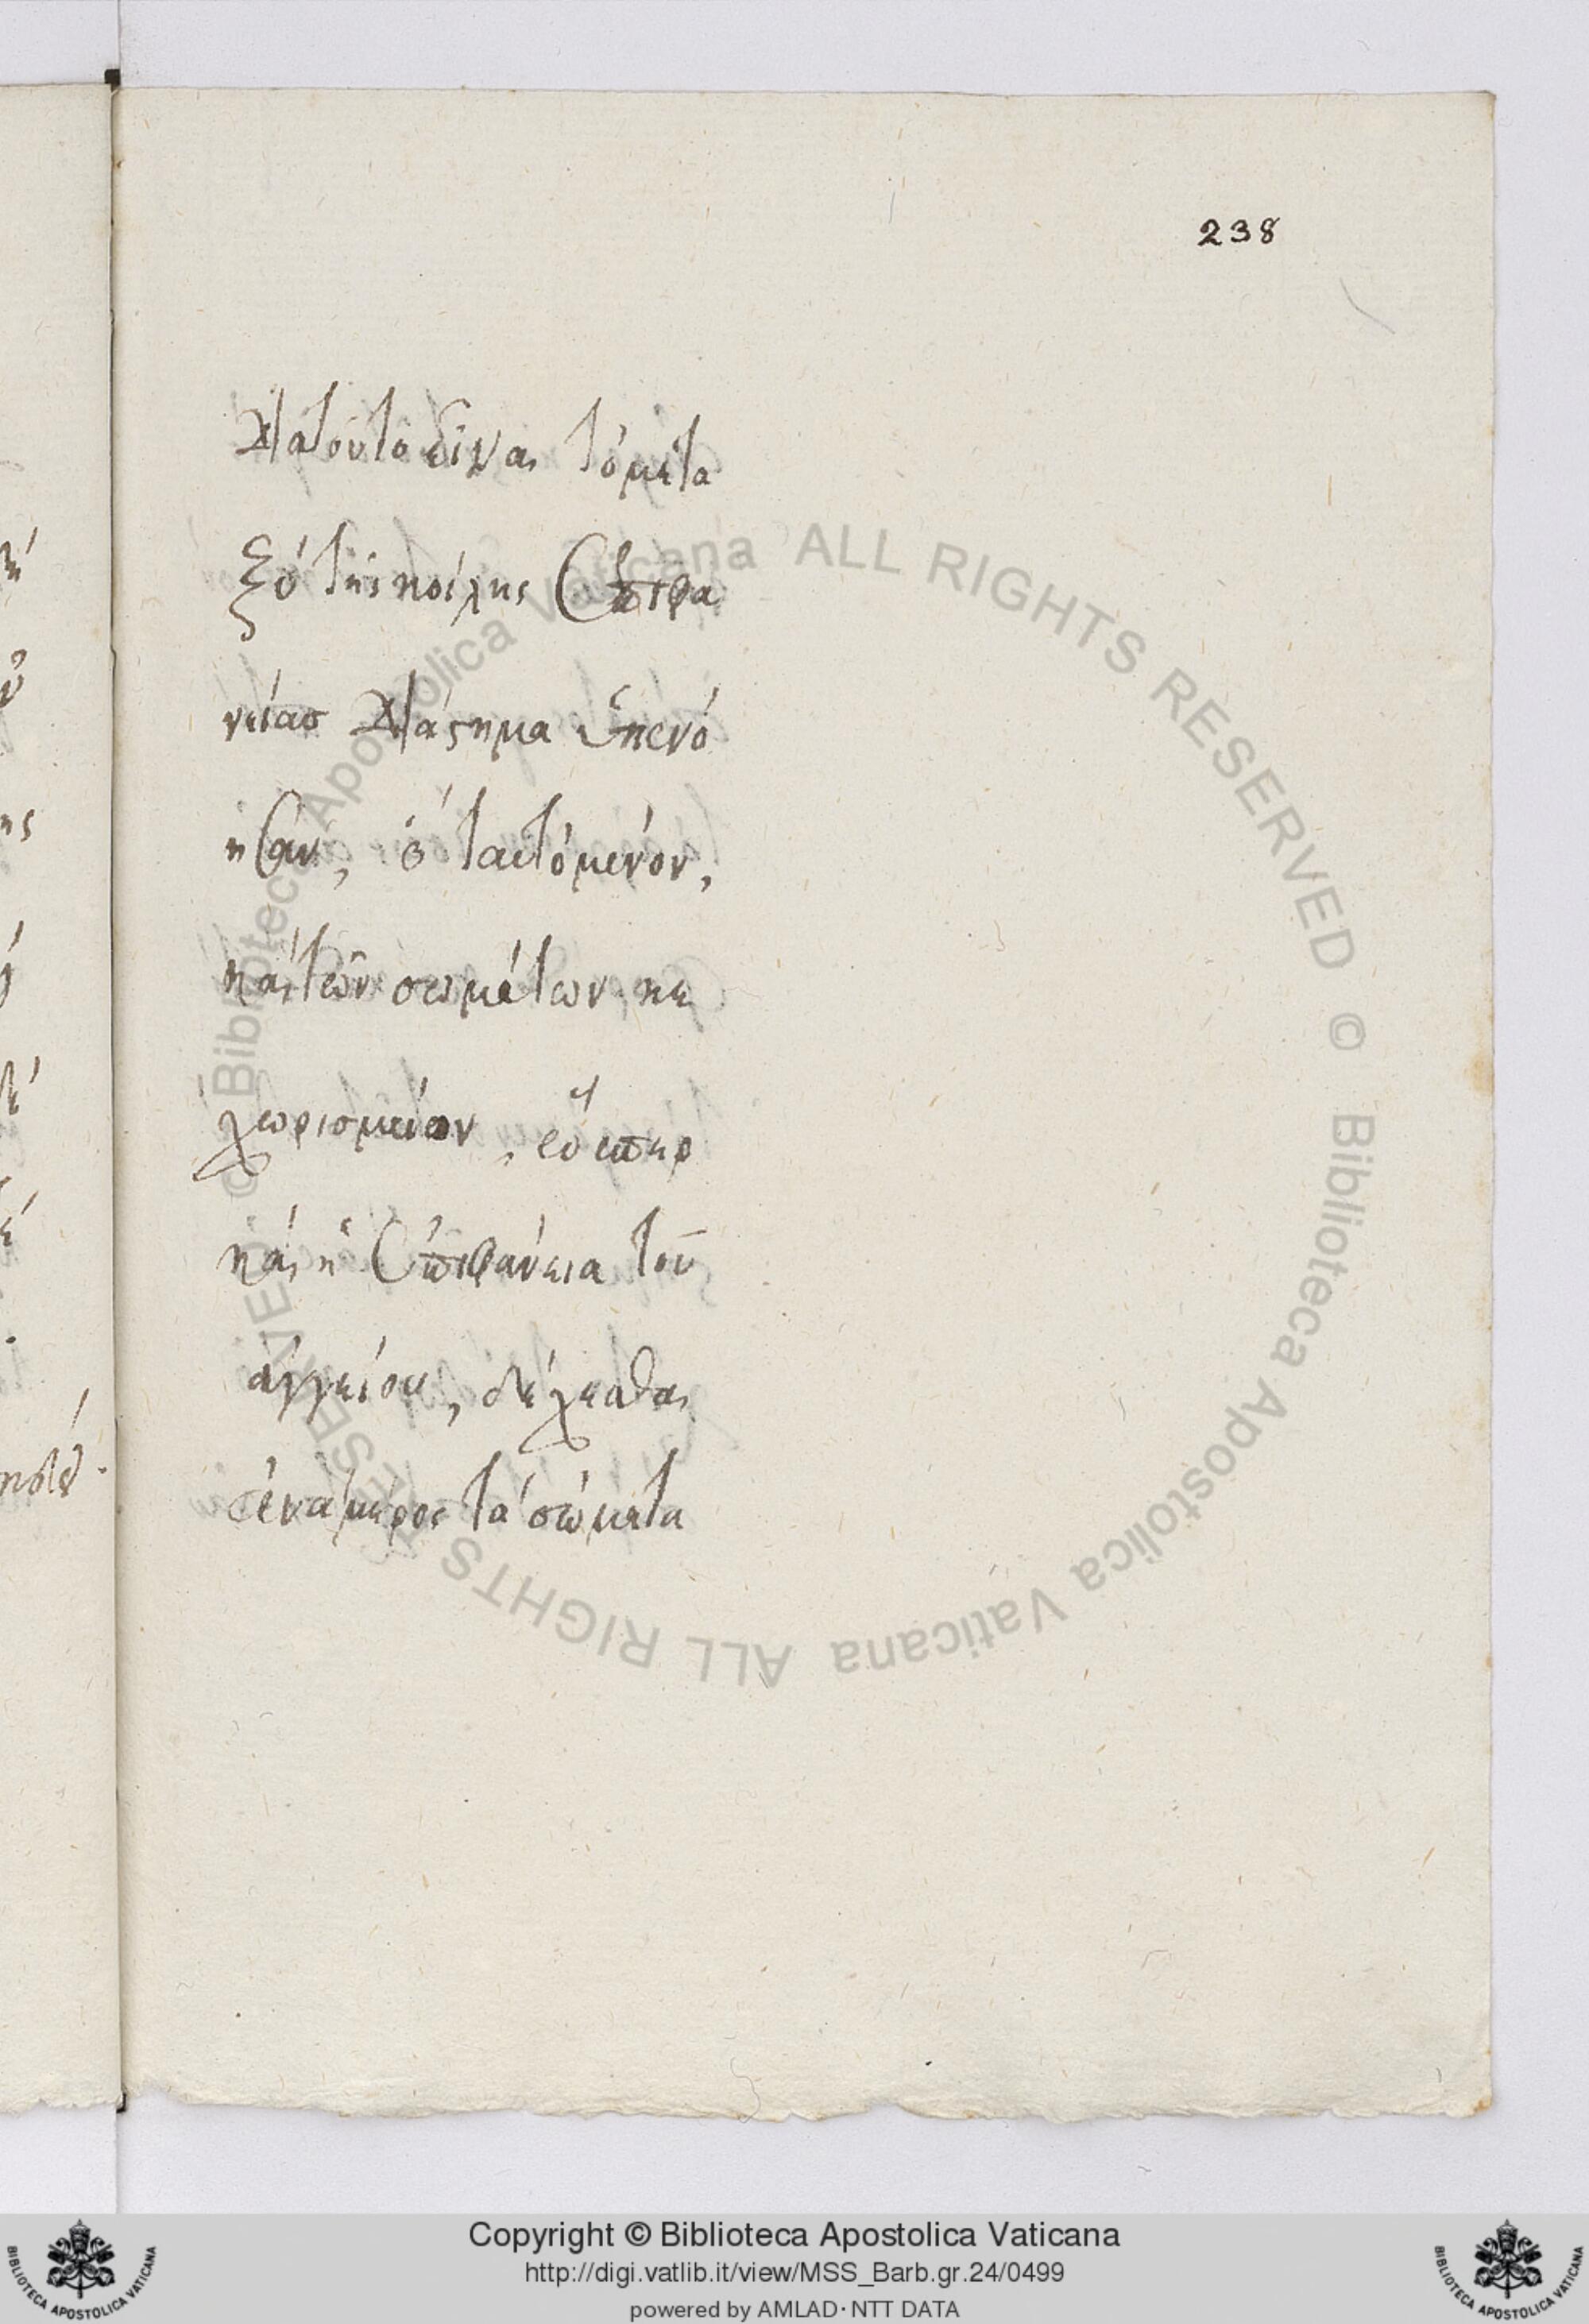 238
διατοῦτο εἶναι τὸ μετα
ξὺ τῆς κοίλης ἐπιφα
νείασ διάστημα ἐπενό
ησαν, ὁ ταυτόμενον,
καὶ τῶν σωμάτων κε
χωρισμένον, εὖ ὥπερ
καὶ ἡ ἐπιφάνεια τοῦ
ἀγγείου, δέχεσθαι
ἀναμέρος τὰ σώματα
© Biblioteca Apostolica Vaticana ALL RIGHTS RESERVED © Biblioteca Apostolica Vaticana ALL RIGHTS RESERVED
Copyright © Biblioteca Apostolica Vaticana
http://digi.vatlib.it/view/MSS_Barb.gr.24/0499
powered by AMLAD·NTT DATA
BIBLIOTECA APOSTOLICA VATICANA
BIBLIOTECA APOSTOLICA VATICANA